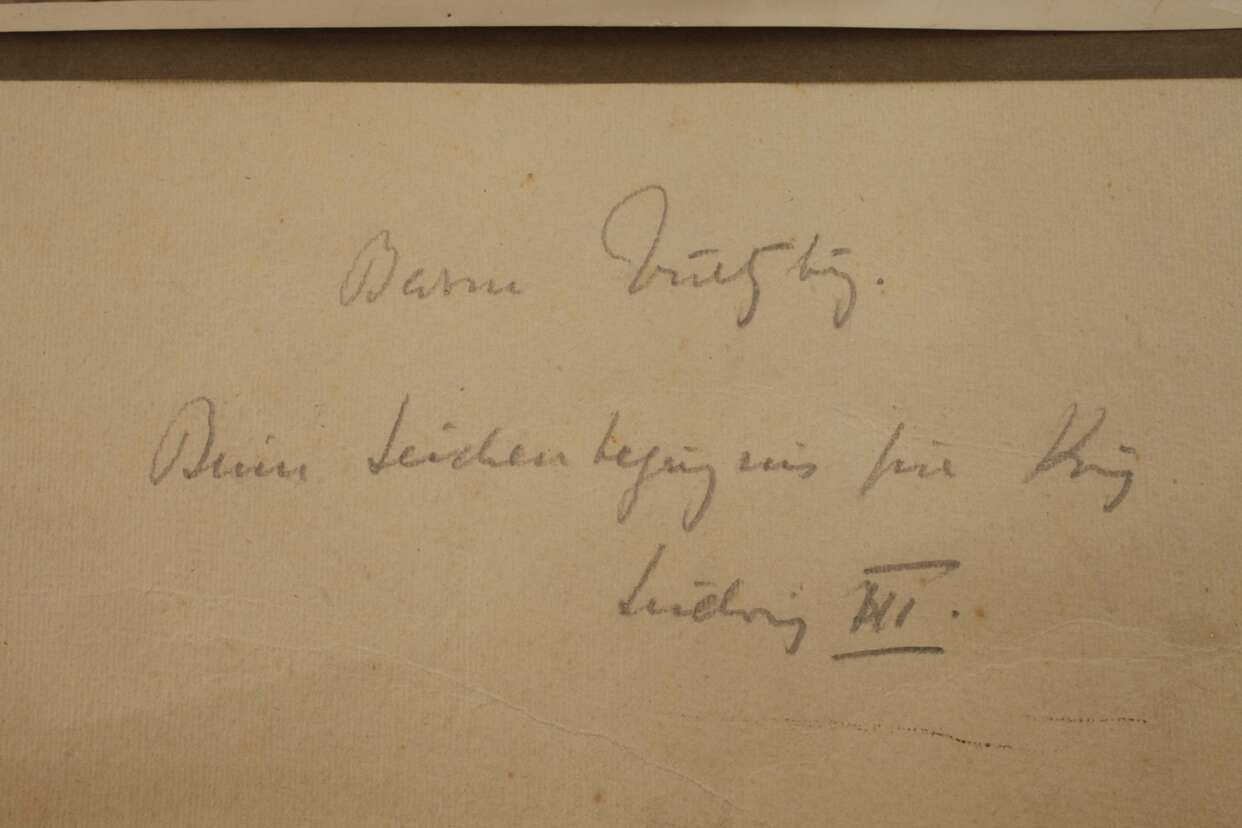 Baron
Beim Leichenbegängnis für König
Ludwig III.